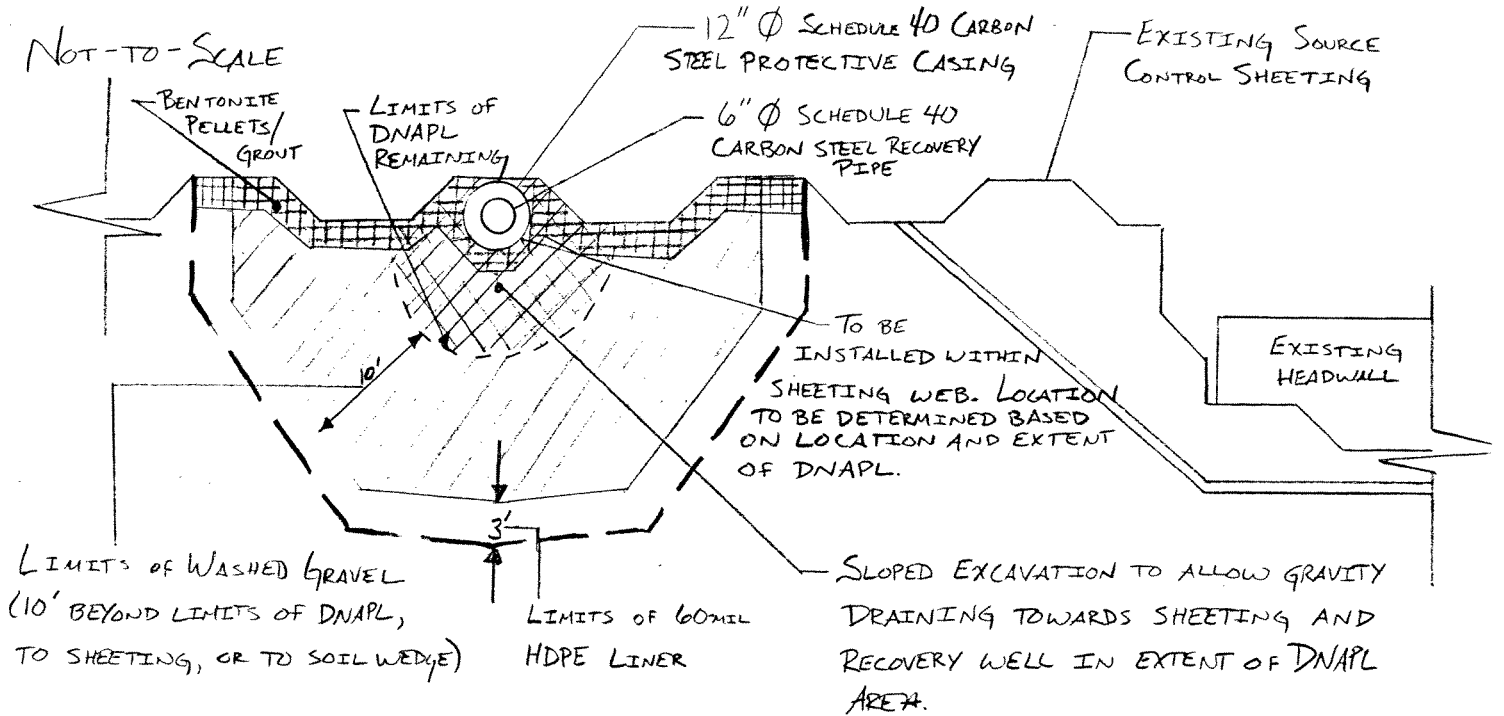 NOT-TO-SCALE
BENTONITE
PELLETS/
GROUT
LIMITS OF
DNAPL
REMAINING
12" Ø SCHEDULE 40 CARBON
STEEL PROTECTIVE CASING
6" Ø SCHEDULE 40
CARBON STEEL RECOVERY
PIPE
EXISTING SOURCE
CONTROL SHEETING
TO BE
INSTALLED WITHIN
SHEETING WEB. LOCATION
TO BE DETERMINED BASED
ON LOCATION AND EXTENT
OF DNAPL.
EXISTING
HEADWALL
10'
3'
LIMITS OF WASHED GRAVEL
(10' BEYOND LIMITS OF DNAPL,
TO SHEETING, OR TO SOIL WEDGE)
LIMITS OF 60MIL
HDPE LINER
SLOPED EXCAVATION TO ALLOW GRAVITY
DRAINING TOWARDS SHEETING AND
RECOVERY WELL IN EXTENT OF DNAPL
AREA.